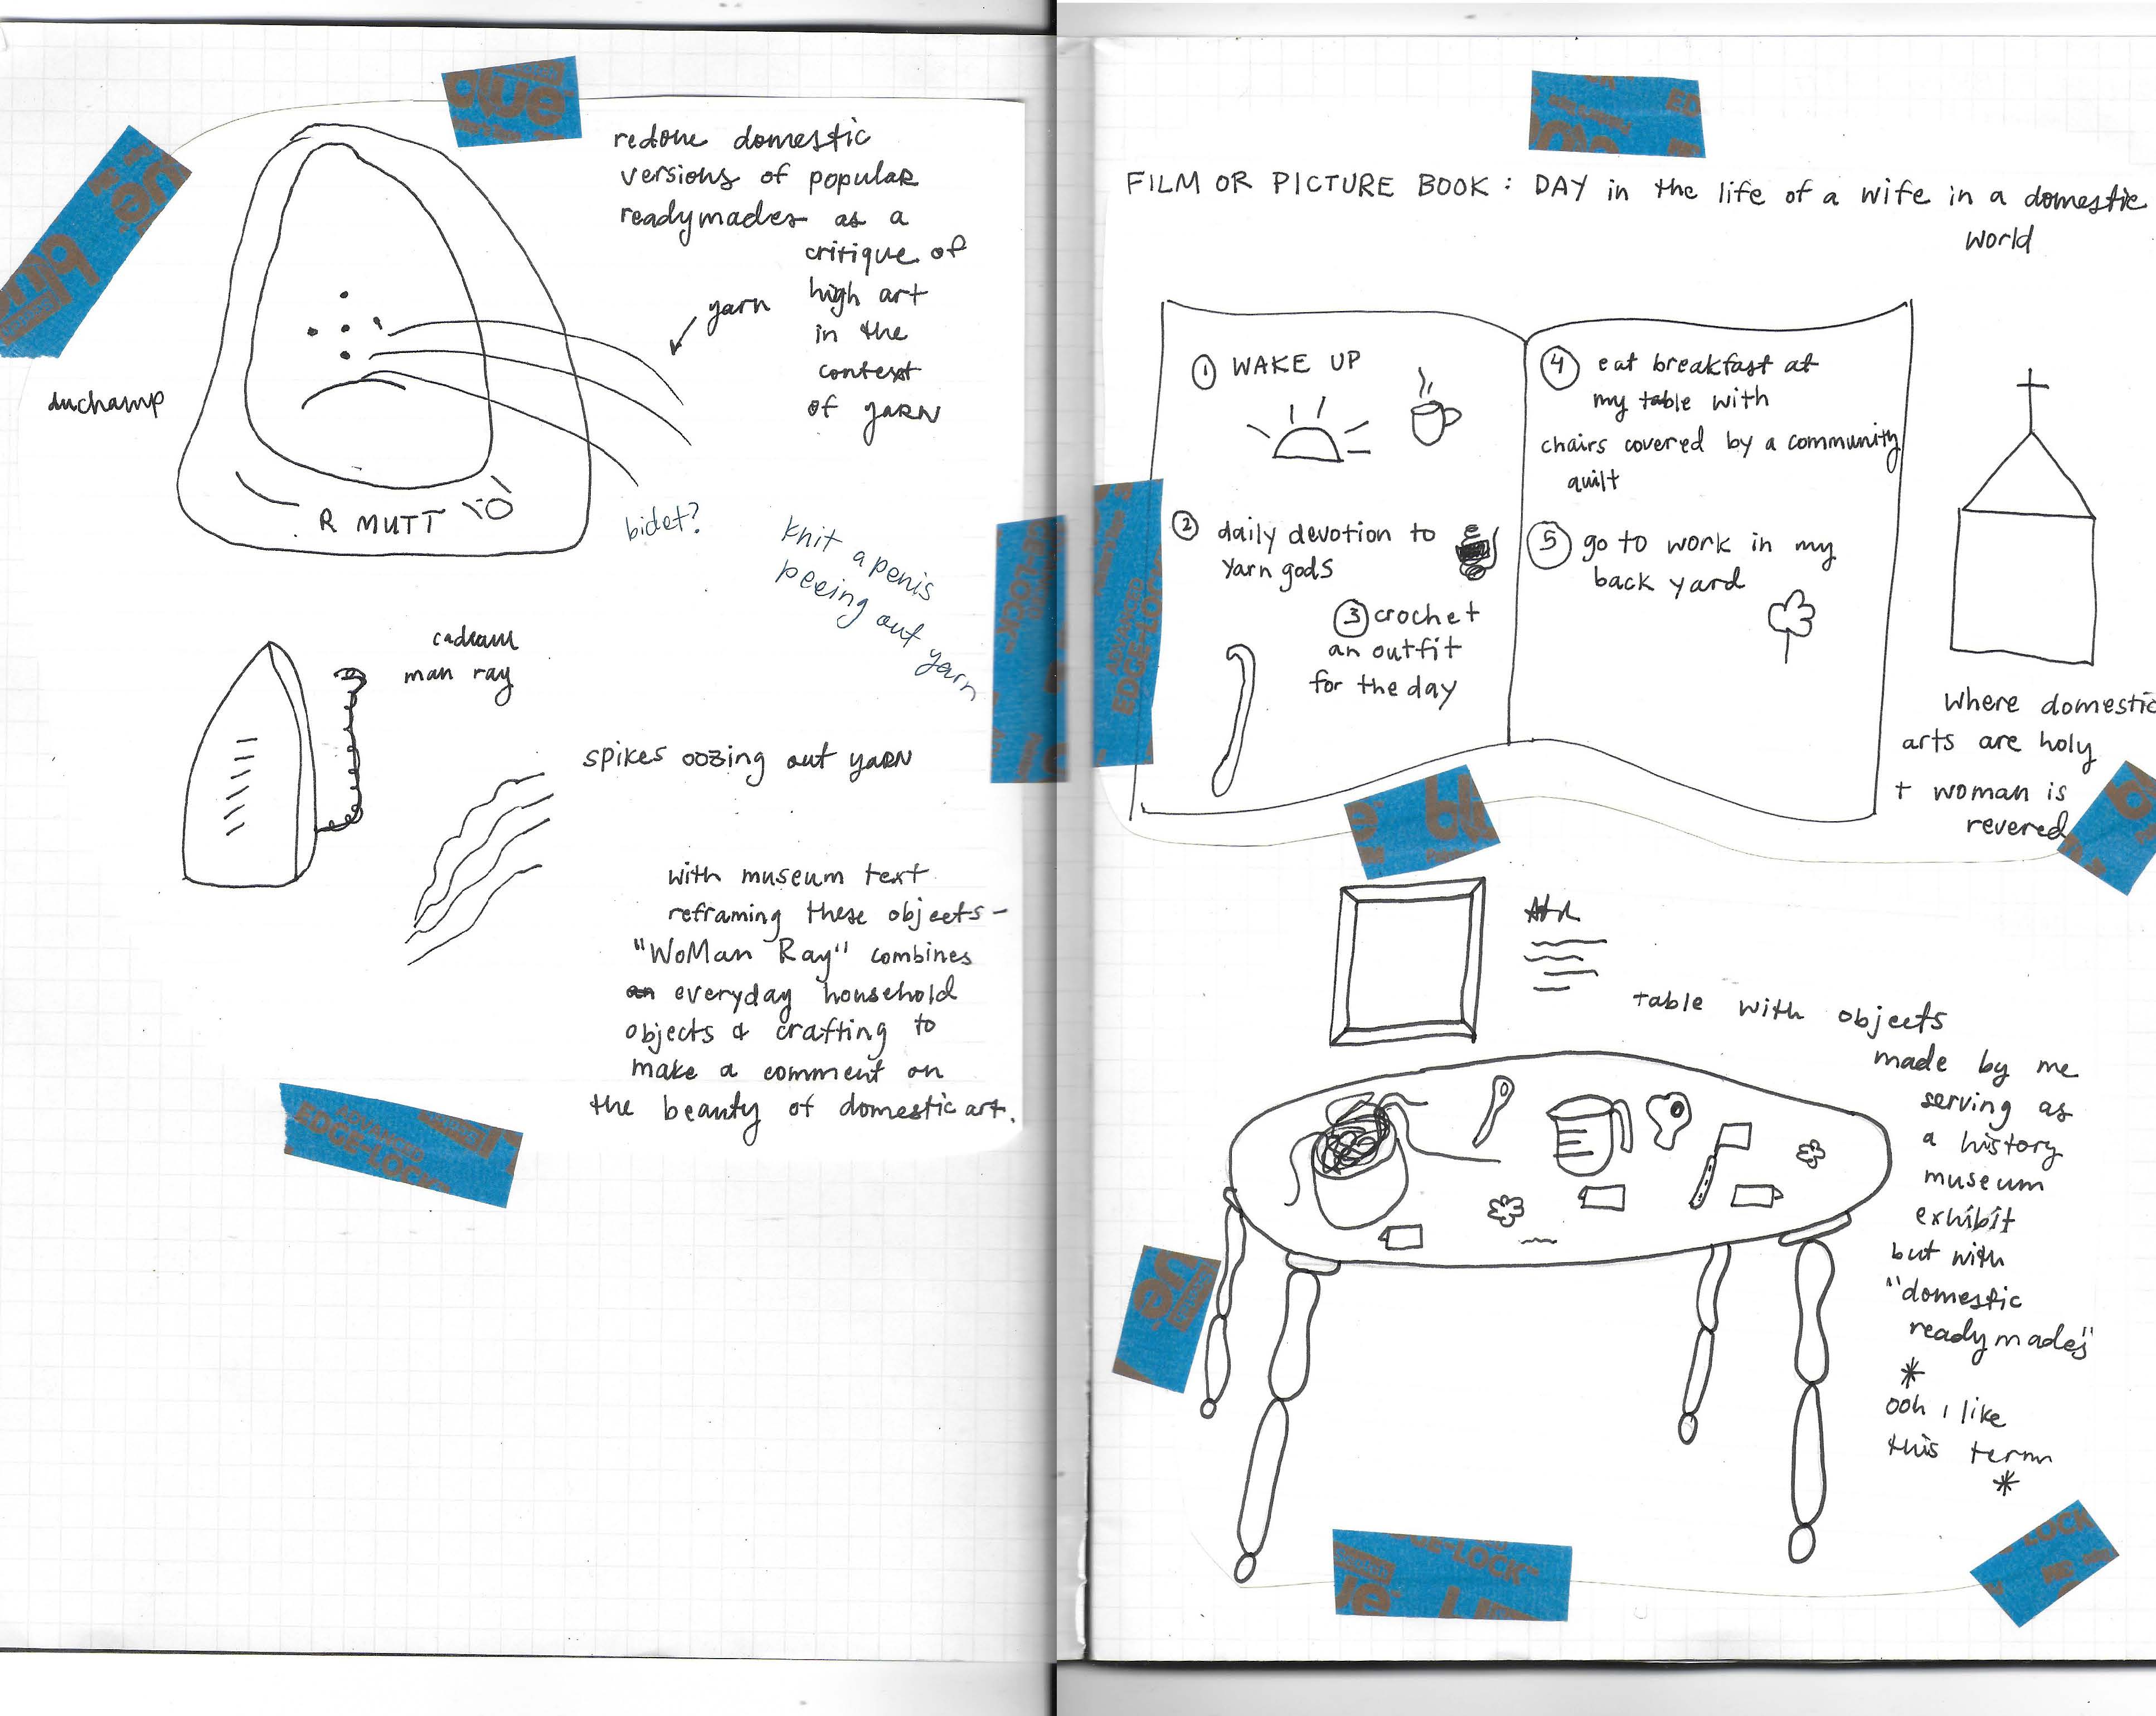 redone domestic
versions of popular
readymades as a
critique of
high art
in the
context
of YARN
yarn
duchamp
R MUTT
bidet?
knit a penis
peeing out
yarn
cadeau
man ray
spikes oozing out YARN
with museum text
reframing these objects—
"WoMan Ray" combines
an everyday household
objects & crafting to
make a comment on
the beauty of domestic art.
FILM OR PICTURE BOOK: DAY in the life of a wife in a domestic
world
① WAKE UP
② daily devotion to
yarn gods
③ crochet
an outfit
for the day
④ eat breakfast at
my table with
chairs covered by a community
quilt
⑤ go to work in my
back yard
Where domestic
arts are holy
+ woman is
revered
table with objects
made by me
serving as
a history
museum
exhibit
but with
"domestic
readymades"
*
ooh i like
this term
*
blue
ADVANCED
EDGE-LOCK
ADVANCED
EDGE-LOCK